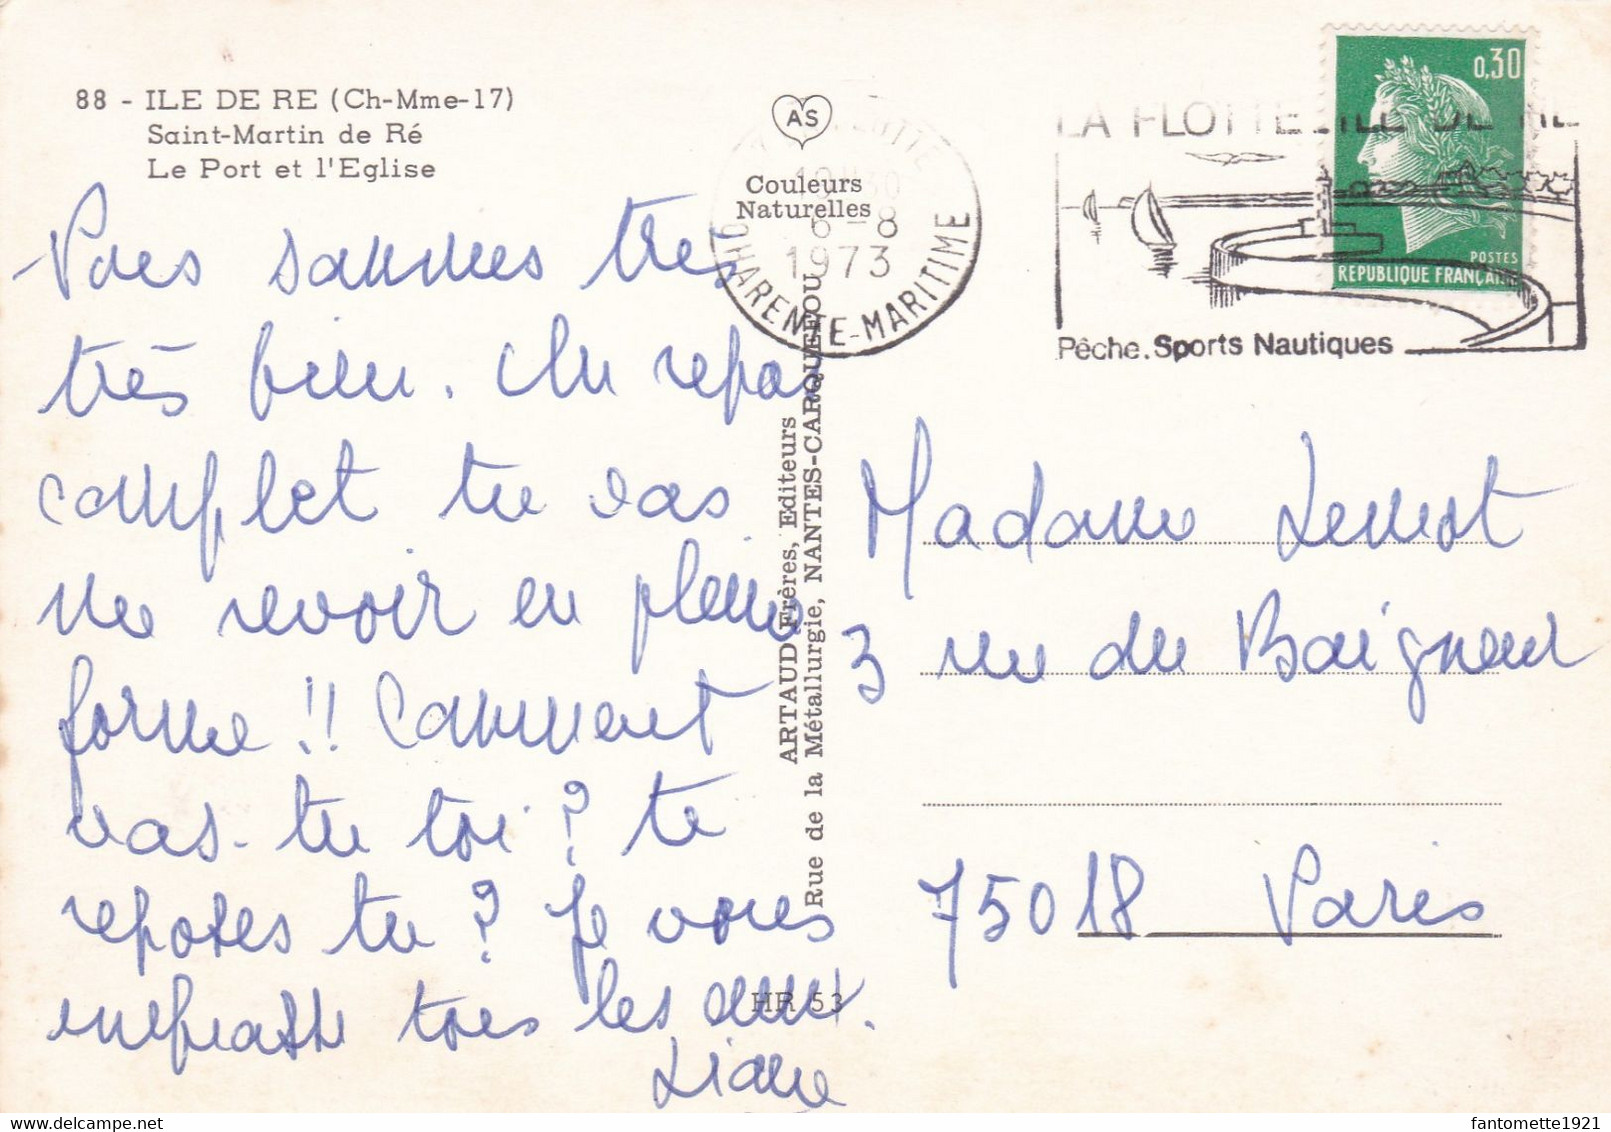 88 - ILE DE RE (Ch-Mme-17)
Saint-Martin de Ré
Le Port et l'Eglise
AS
Couleurs
Naturelles
LA FLOTTE
6-8
1973
CHARENTE-MARITIME
LA FLOTTE ILE DE RE
Pêche. Sports Nautiques
0,30
POSTES
REPUBLIQUE FRANÇAISE
Nous sommes très
très bien. Un repos
complet tu vas
me revoir en pleine
forme !! Comment
vas-tu toi ? te
reposes tu ? Je vous
embrasse tous les deux.
Liane
ARTAUD Frères, Editeurs
Rue de la Métallurgie, NANTES-CARQUEFOU
HR 53
Madame Lemot
3 rue du Baigneur
75018 Paris
fantomette1921